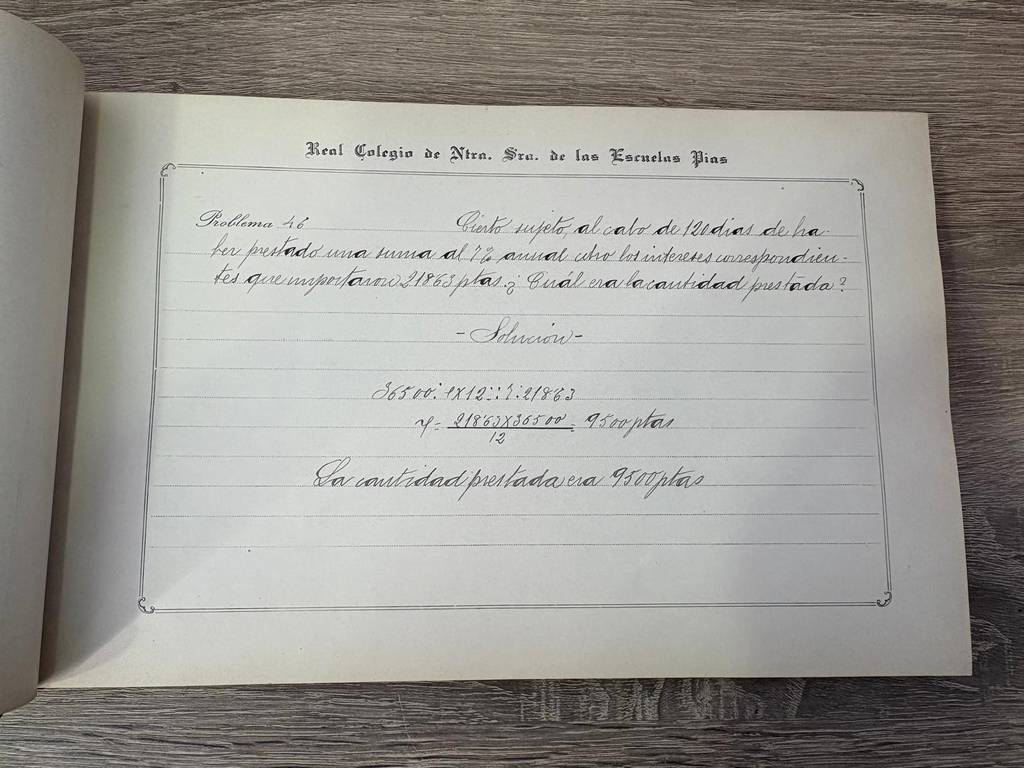 Real Colegio de Ntra. Sra. de las Escuelas Pias
Problema 46 Cierto sujeto, al cabo de 120 dias de ha-
ber prestado una suma al 7% anual cobro los intereses correspondien-
tes que importaron 21863 ptas. ¿Cuál era la cantidad prestada?
- Solución -
36500: 12:: : 21863
= 21863 X 36500 = 9500 ptas
12
La cantidad prestada era 9500 ptas